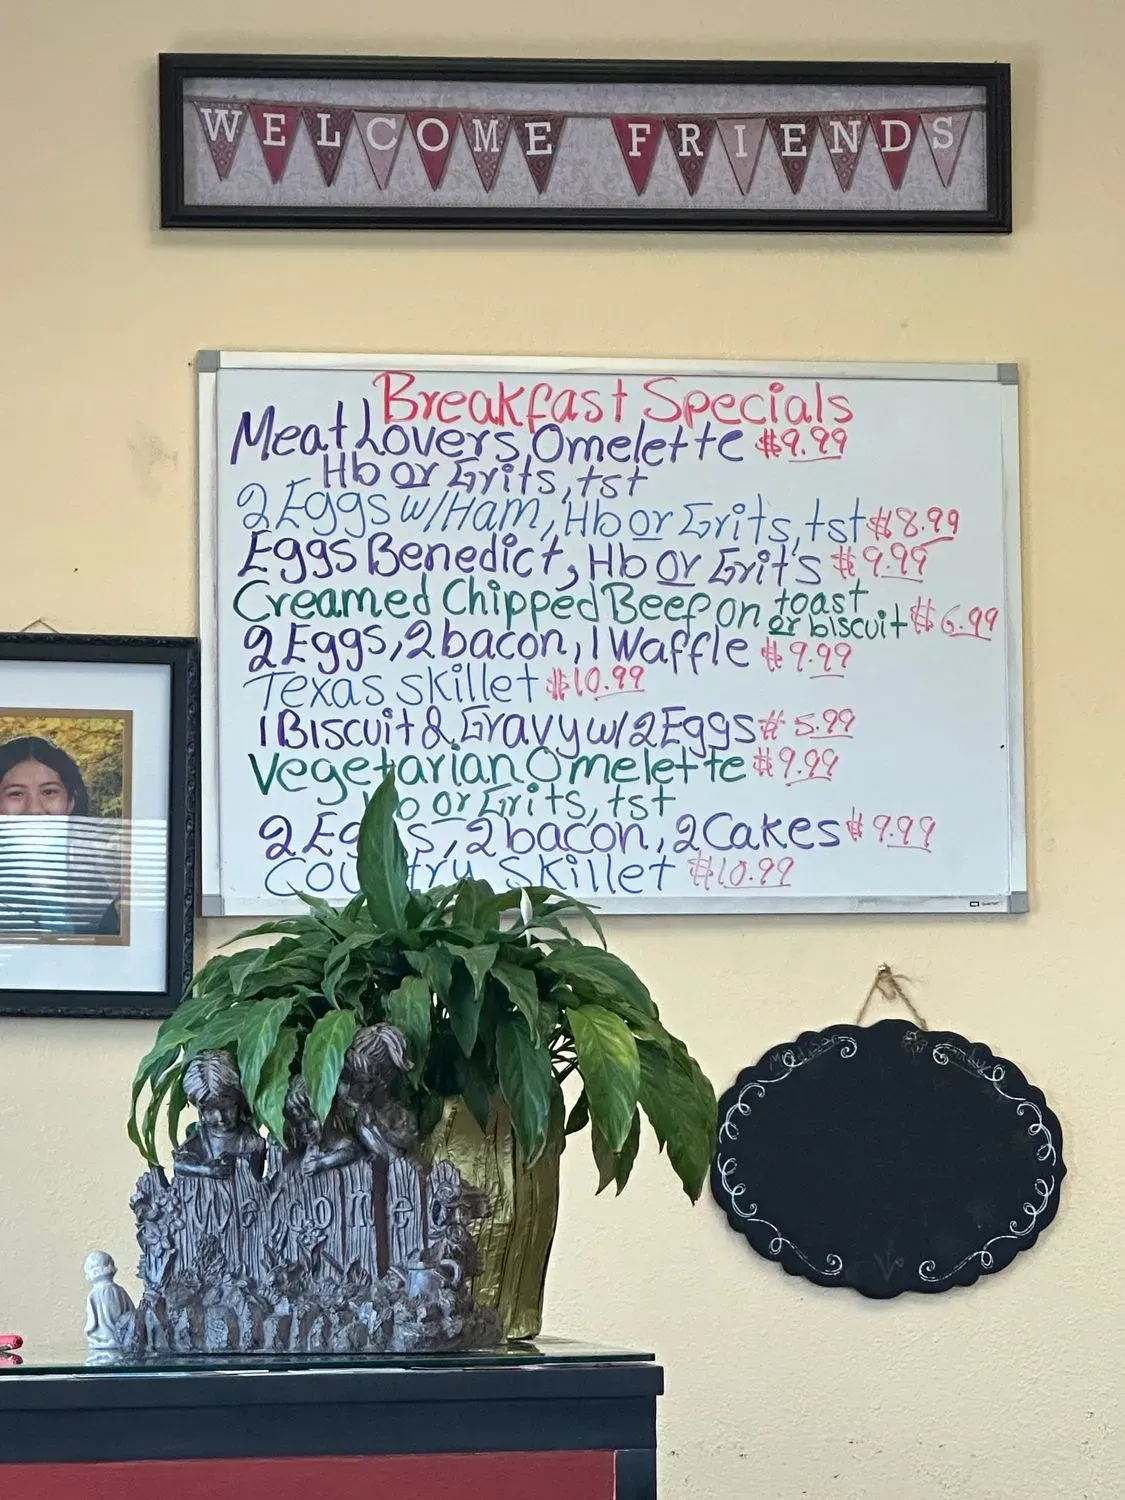 WELCOME FRIENDS
Breakfast Specials
Meat Lovers Omelette $9.99
Hb or Grits, tst
2 Eggs w/Ham, Hb or Grits, tst $8.99
Eggs Benedict, Hb or Grits $9.99
Creamed Chipped Beef on toast
or biscuit $6.99
2 Eggs, 2 bacon, 1 Waffle $9.99
Texas skillet $10.99
1 Biscuit & Gravy w/ 2 Eggs $5.99
Vegetarian Omelette $9.99
or Grits, tst
2 Eggs, 2 bacon, 2 Cakes $9.99
Country Skillet $10.99
Welcome